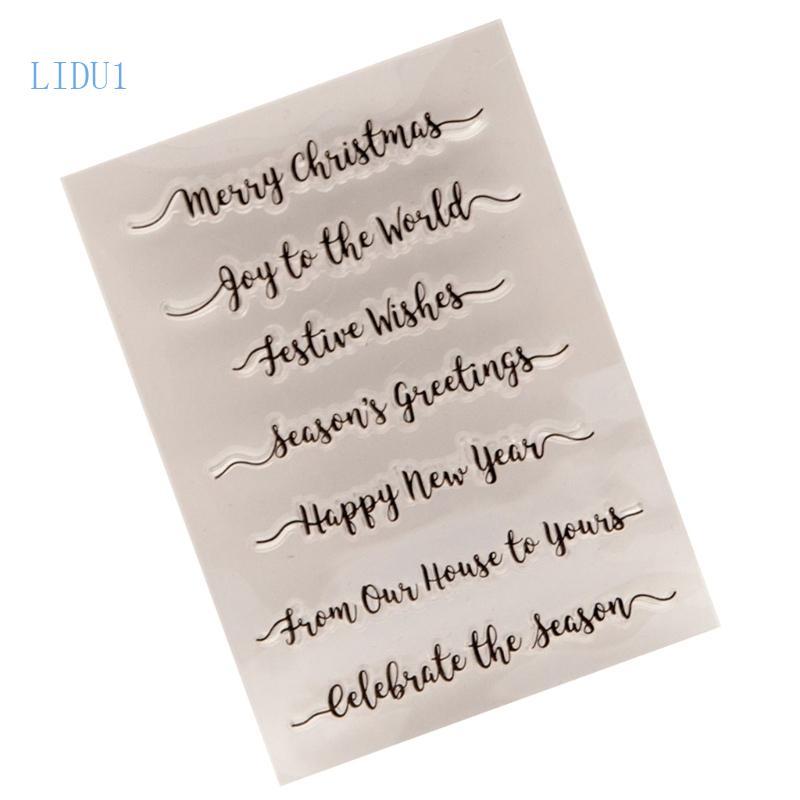 LIDU1
Merry Christmas
Joy to the World
Festive Wishes
Season's Greetings
Happy New Year
From Our House to Yours
Celebrate the Season